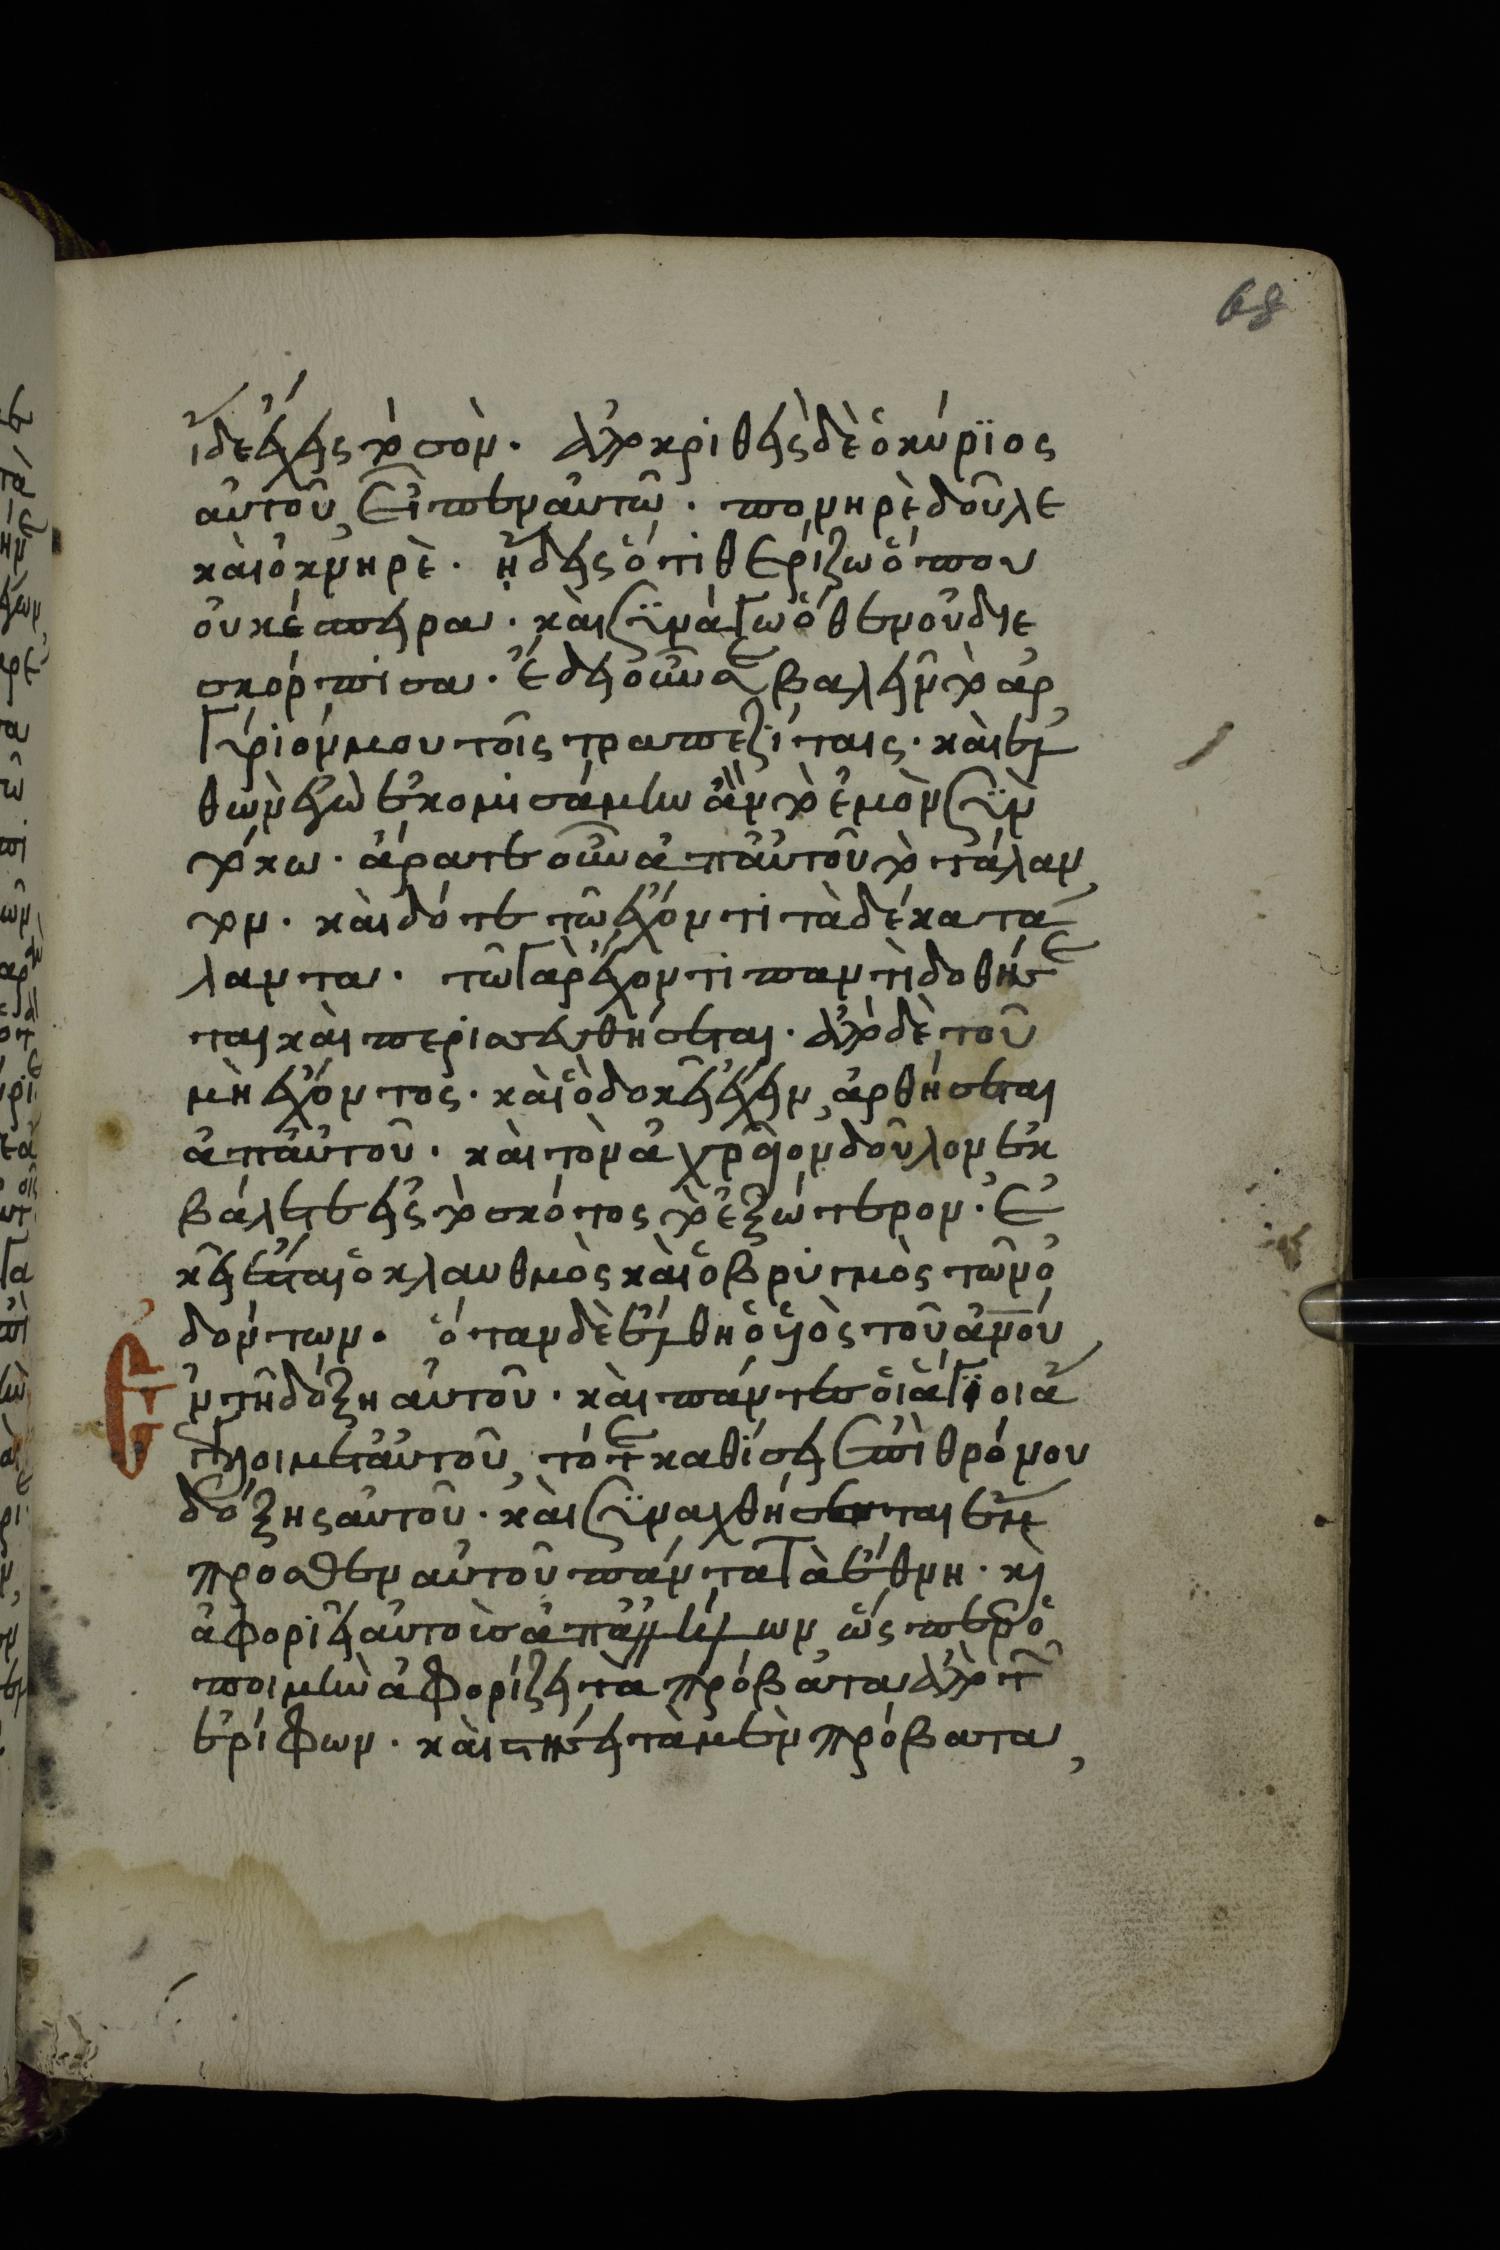 68
ἴδε ἔχεις τὸ σὸν. ἀποκριθεὶς δὲ ὁ κύριος
αὐτοῦ, εἶπεν αὐτῶ. πονηρὲ δοῦλε
καὶ ὀκνηρὲ. ἤδεις ὅτι θερίζω ὅπου
οὐκ ἔσπειρα. καὶ συνάγω ὅθεν οὐ διε
σκόρπισα. ἔδει οὖν σε βαλεῖν τὸ ἀρ
γύριόν μου τοῖς τραπεζίταις. καὶ ἐλ
θὼν ἐγὼ ἐκομισάμην ἂν τὸ ἐμὸν σὺν
τόκω. ἄρατε οὖν ἀπ' αὐτοῦ τὸ τάλαν
τον. καὶ δότε τῶ ἔχοντι τὰ δέκα τά
λαντα. τῶ γὰρ ἔχοντι παντὶ δοθήσε
ται καὶ περισσευθήσεται. ἀπὸ δὲ τοῦ
μὴ ἔχοντος. καὶ ὃ δοκεῖ ἔχειν, ἀρθήσεται
ἀπ' αὐτοῦ. καὶ τὸν ἀχρεῖον δοῦλον ἐκ
βάλετε εἰς τὸ σκότος τὸ ἐξώτερον. ἐ
κεῖ ἔσται ὁ κλαυθμὸς καὶ ὁ βρυγμὸς τῶν ὀ
δόντων. ὅταν δὲ ἔλθη ὁ υἱὸς τοῦ ἀνου
ἐν τῆ δόξη αὐτοῦ. καὶ πάντες οἱ ἅγιοι ἄ
γγελοι μετ' αὐτοῦ, τότε καθίσει ἐπὶ θρόνου
δόξης αὐτοῦ. καὶ συναχθήσεται ἔμ
προσθεν αὐτοῦ πάντα τὰ ἔθνη. κὶ
ἀφοριεῖ αὐτοὺσ ἀπ' ἀλλήλων ὥς περ ὁ
ποιμὴν ἀφορίζει τὰ πρόβατα ἀπὸ τῶν
ἐρίφων. καὶ στήσει τὰ μὲν πρόβατα,